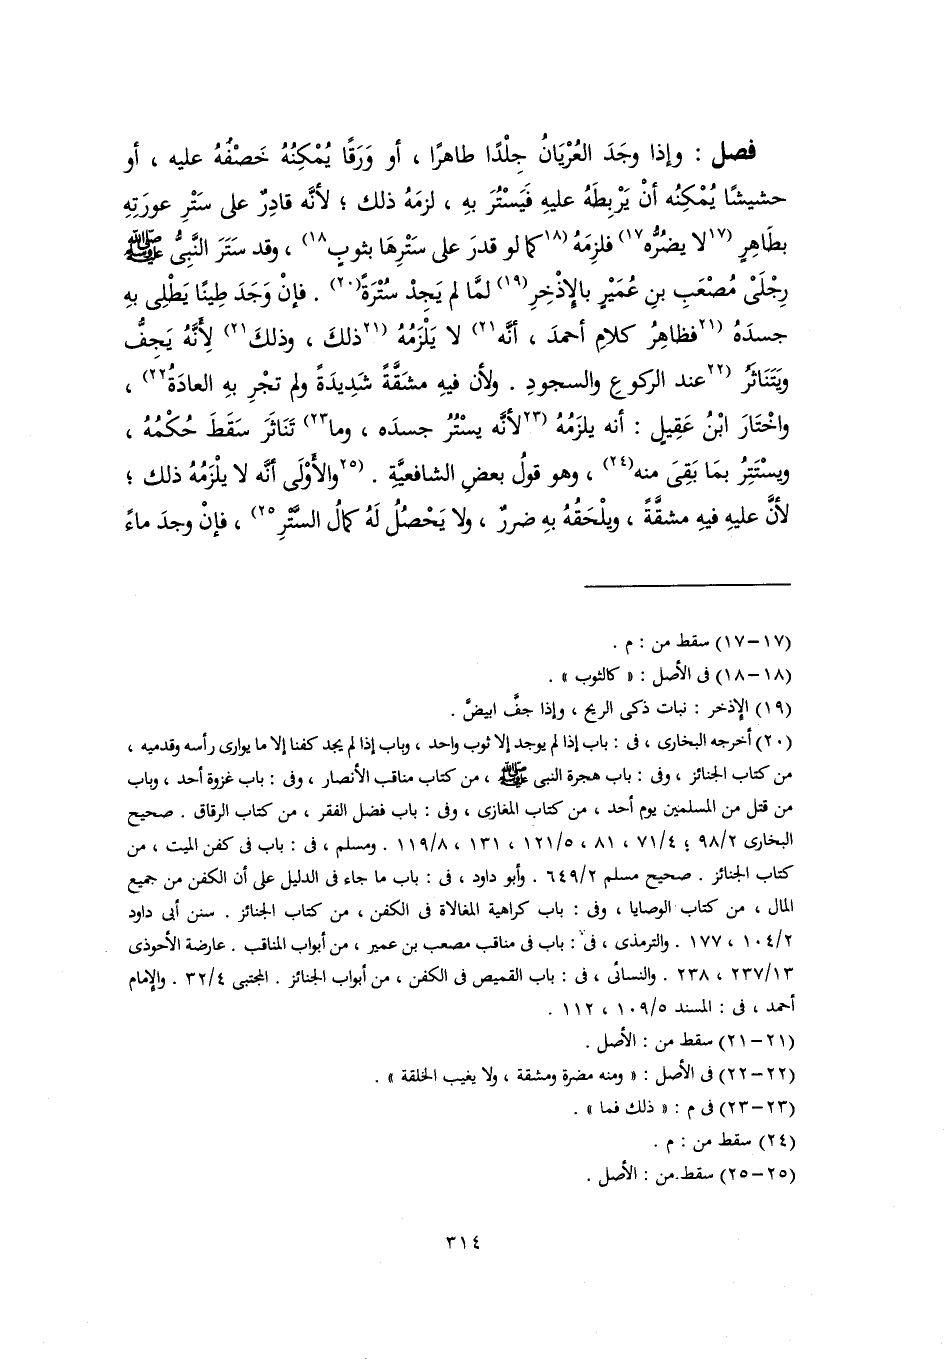 فصل : وإذا وجَدَ العُرْيَانُ جِلْدًا طاهرًا ، أو وَرَقًا يُمْكِنُهُ خَصْفُهُ عليه ، أو
حشيشًا يُمْكِنُه أنْ يَرْبِطَهُ عليهِ فَيَسْتُرَ بهِ ، لزمَهُ ذلك ؛ لأنَّه قادِرٌ على سَتْرِ عورَتِهِ
بطَاهِرٍ (١٧لا يضرُّه١٧) فلزِمَهُ (١٨كما لو قدرَ على سَتْرِهَا بثوبٍ١٨) ، وقد ستَرَ النَّبِىُّ ﷺ
رِجْلَىْ مُصْعَبِ بنِ عُمَيْرٍ بالإِذْخِرِ(١٩) لمَّا لم يَجِدْ سُتْرَةً(٢٠) . فإنْ وَجَدَ طِينًا يَطْلِى بهِ
جسدَهُ (٢١فظاهِرُ كلامِ أحمدَ ، أنَّه٢١) لا يَلْزَمُهُ (٢١ذلك ، وذلكَ٢١) لِأَنَّهُ يَجِفُّ
ويَتَنَاثَرُ (٢٢عند الركوعِ والسجودِ . ولأن فيهِ مشقَّةً شَدِيدَةً ولم تجْرِ بهِ العادَةُ٢٢) ،
واخْتَارَ ابْنُ عَقِيلٍ : أنه يلزَمُهُ (٢٣لأنَّه يسْتُرُ جسدَه ، وما٢٣) تَنَاثَرَ سقَطَ حُكْمُهُ ،
ويسْتَتِرُ بمَا بَقِىَ منه(٢٤) ، وهو قولُ بعضِ الشافعيَّةِ . (٢٥والأَوْلَى أنَّه لا يلْزَمُهُ ذلك ؛
لأنَّ عليهِ فيهِ مشقَّةً ، ويلْحَقُهُ بهِ ضررٌ ، ولا يَحْصُلُ لَهُ كمالُ السَّتْرِ٢٥) ، فإنْ وجدَ ماءً
(١٧-١٧) سقط من : م .
(١٨-١٨) فى الأصل : « كالثوب » .
(١٩) الإذخر : نبات ذكى الريح ، وإذا جفَّ ابيضَّ .
(٢٠) أخرجه البخارى ، فى : باب إذا لم يوجد إلا ثوب واحد ، وباب إذا لم يجد كفنا إلا ما يوارى رأسه وقدميه ،
من كتاب الجنائز ، وفى : باب هجرة النبى ﷺ ، من كتاب مناقب الأنصار ، وفى : باب غزوة أحد ، وباب
من قتل من المسلمين يوم أحد ، من كتاب المغازى ، وفى : باب فضل الفقر ، من كتاب الرقاق . صحيح
البخارى ٩٨/٢ ؛ ٧١/٤ ، ٨١ ، ١٢١/٥ ، ١٣١ ، ١١٩/٨ . ومسلم ، فى : باب فى كفن الميت ، من
كتاب الجنائز . صحيح مسلم ٦٤٩/٢ . وأبو داود ، فى : باب ما جاء فى الدليل على أن الكفن من جميع
المال ، من كتاب الوصايا ، وفى : باب كراهية المغالاة فى الكفن ، من كتاب الجنائز . سنن أبى داود
١٠٤/٢ ، ١٧٧ . والترمذى ، فى : باب فى مناقب مصعب بن عمير ، من أبواب المناقب . عارضة الأحوذى
٢٣٧/١٣ ، ٢٣٨ . والنسائى ، فى : باب القميص فى الكفن ، من أبواب الجنائز . المجتبى ٣٢/٤ . والإمام
أحمد ، فى : المسند ١٠٩/٥ ، ١١٢ .
(٢١-٢١) سقط من : الأصل .
(٢٢-٢٢) فى الأصل : « ومنه مضرة ومشقة ، ولا يغيب الخلقة » .
(٢٣-٢٣) فى م : « ذلك فما » .
(٢٤) سقط من : م .
(٢٥-٢٥) سقط من : الأصل .
٣١٤